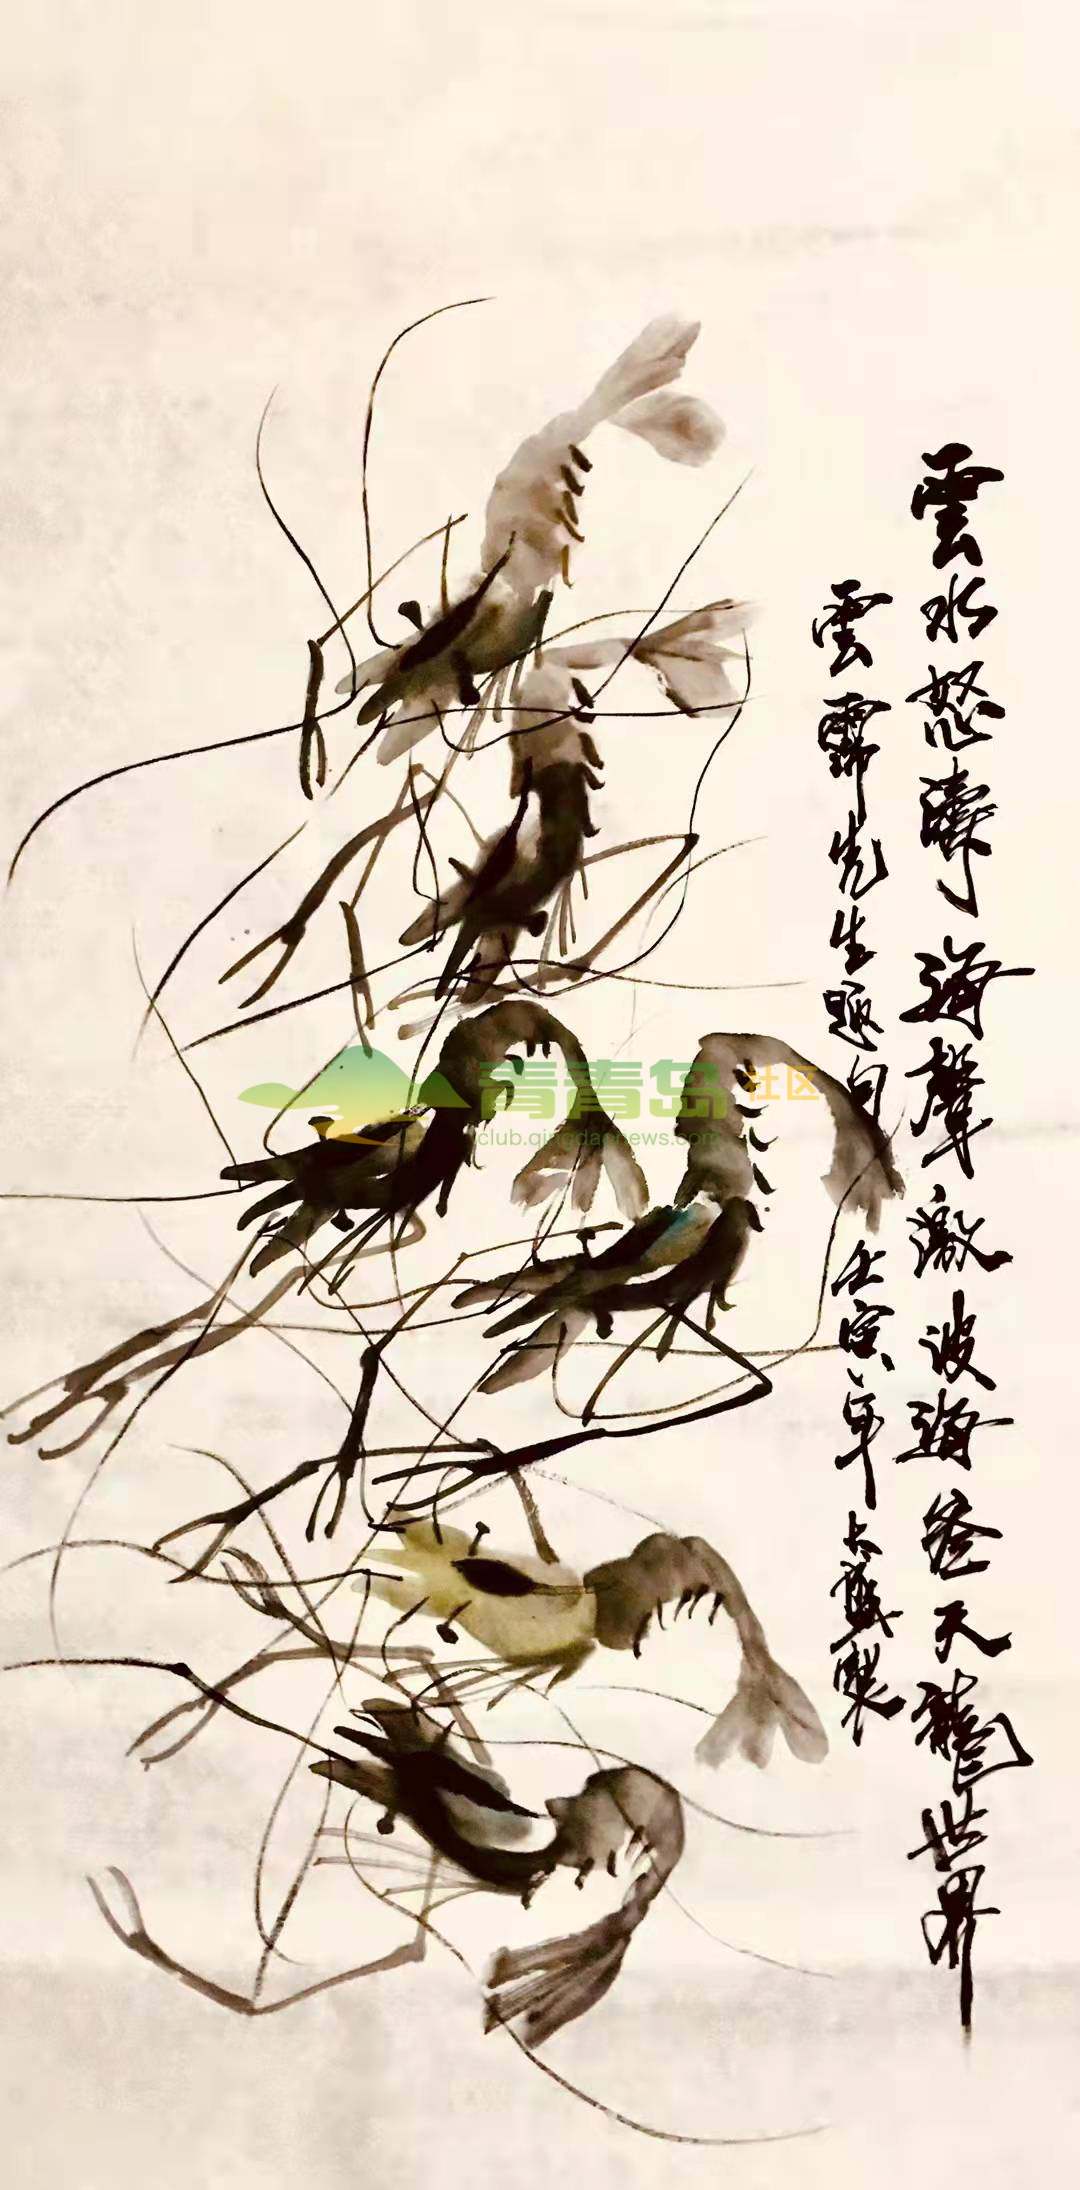 雲水怒濤海聲激波海天龍世界
雲先生题句 壬寅年 大製
青青岛社区
club.qingdaonews.com